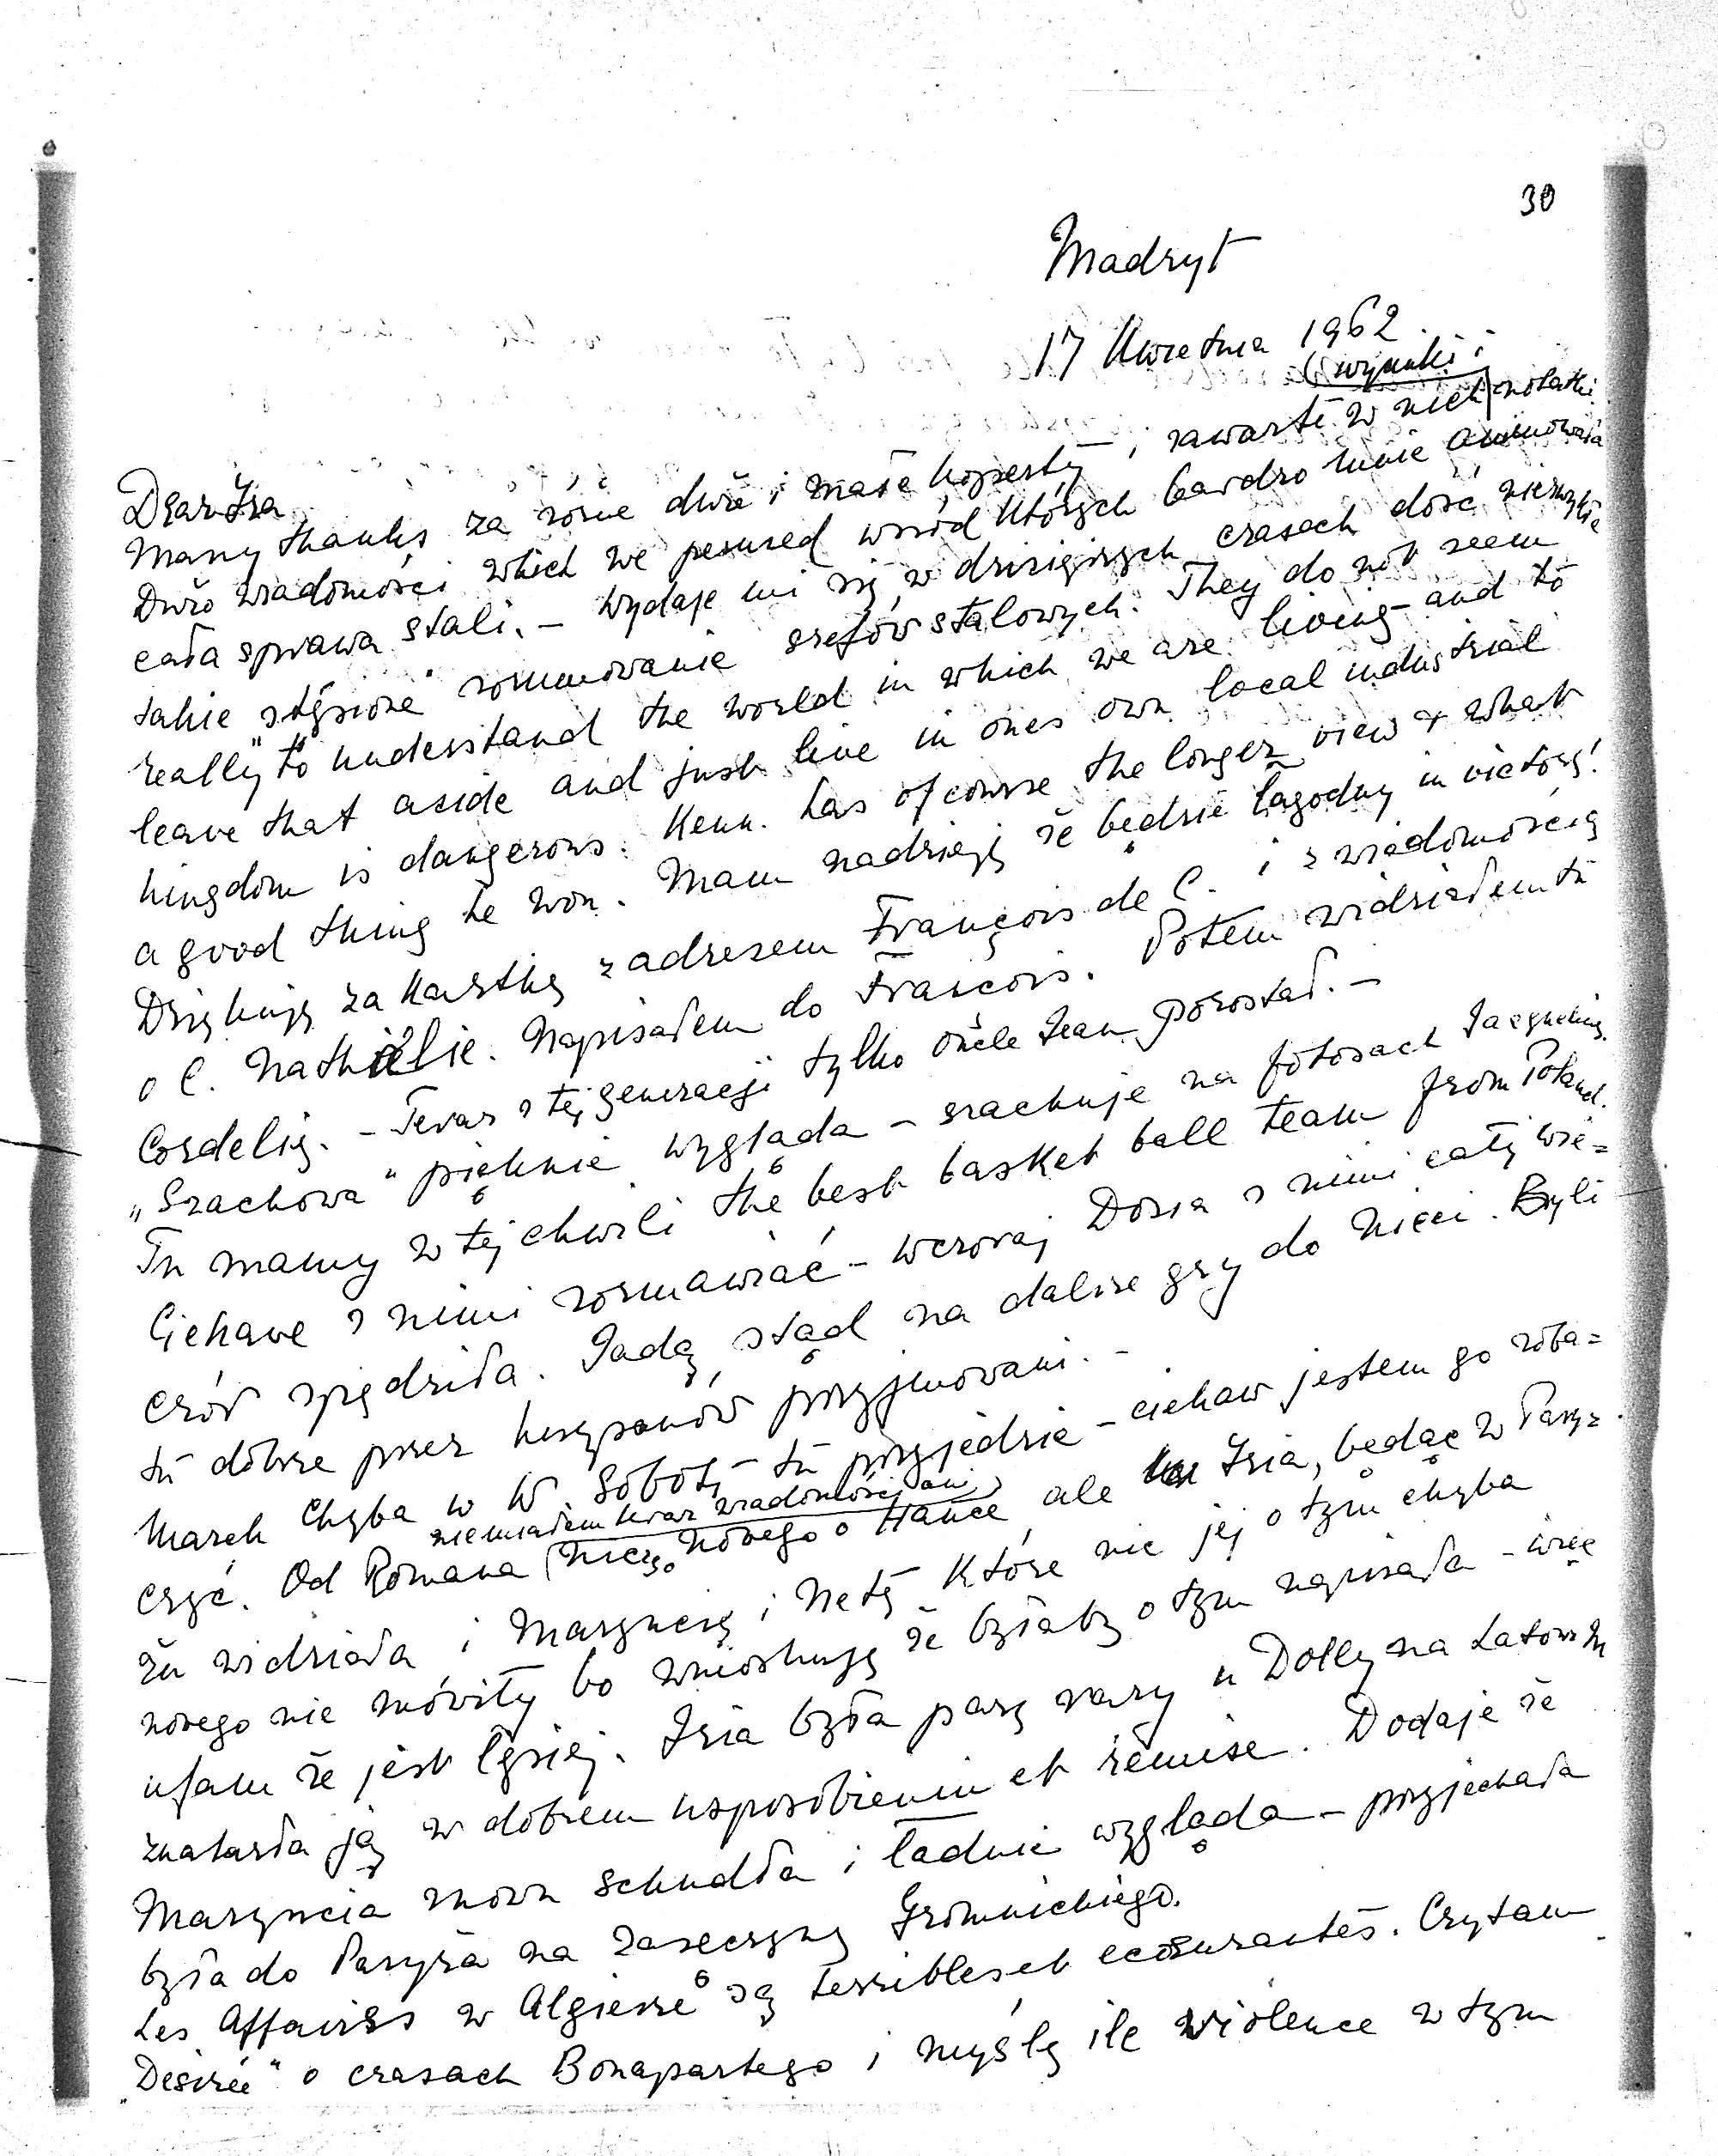 30
Madryt
17 Kwietnia 1962.
(wycinki i
Dear Iza
Many thanks za różne duże i małe koperty – i zawarte w nich notatki
Dużo wiadomości which we perused wśród których bardzo mnie animowała
cała sprawa stali. – Wydaje mi się, w dzisiejszych czasach dość niezwykłe
takie stępione rozumowanie szefów stalowych. They do not seem
really "to understand the world in which we are living – and to
leave that aside and just live in ones own local industrial
kingdom is dangerous. Kenn. has of course the longer view & what
a good thing he won. Mam nadzieję że będzie łagodny in victory!
Dziękuję za kartkę z adresem François de C. i z wiadomością
o C. Nathalie. Napisałem do François. Potem widziałem tu
Cordelię. – Teraz z tej generacji tylko oncle Jean pozostał. –
„Szachowa" pięknie wygląda – szachuje na fotosach Jacqueline.
Tu mamy w tej chwili the best basket ball team from Poland.
Ciekawe z nimi rozmawiać – wczoraj Dosia z nimi cały wie=
czór spędziła. Jadą stąd na dalsze gry do Nicei. Byli
tu dobrze przez hiszpanów przyjmowani. –
Marek chyba w W. Sobotę tu przyjedzie – ciekaw jestem go zoba=
czyć. Od Romana (niczego nowego o Hance, ale Izia, będąc w Paryż.
nie miałem teraz wiadomości ani)
żu widziała i Maryncię i Netę które nic jej o tym chyba
nowego nie mówiły bo wnioskuję że byłaby o tym napisała – więc
ufam że jest lepiej. Izia była parę razy u Dolly na Latour M
znalazła ją w dobrem usposobieniu et remise. Dodaje że
Maryncia znowu schudła i ładnie wygląda – przyjechała
była do Paryża na zaręczyny Gromnickiego.
Les Affaires w Algierze są terribles et écœurantes. Czytam
„Desirée" o czasach Bonapartego i myślę ile violence w tym